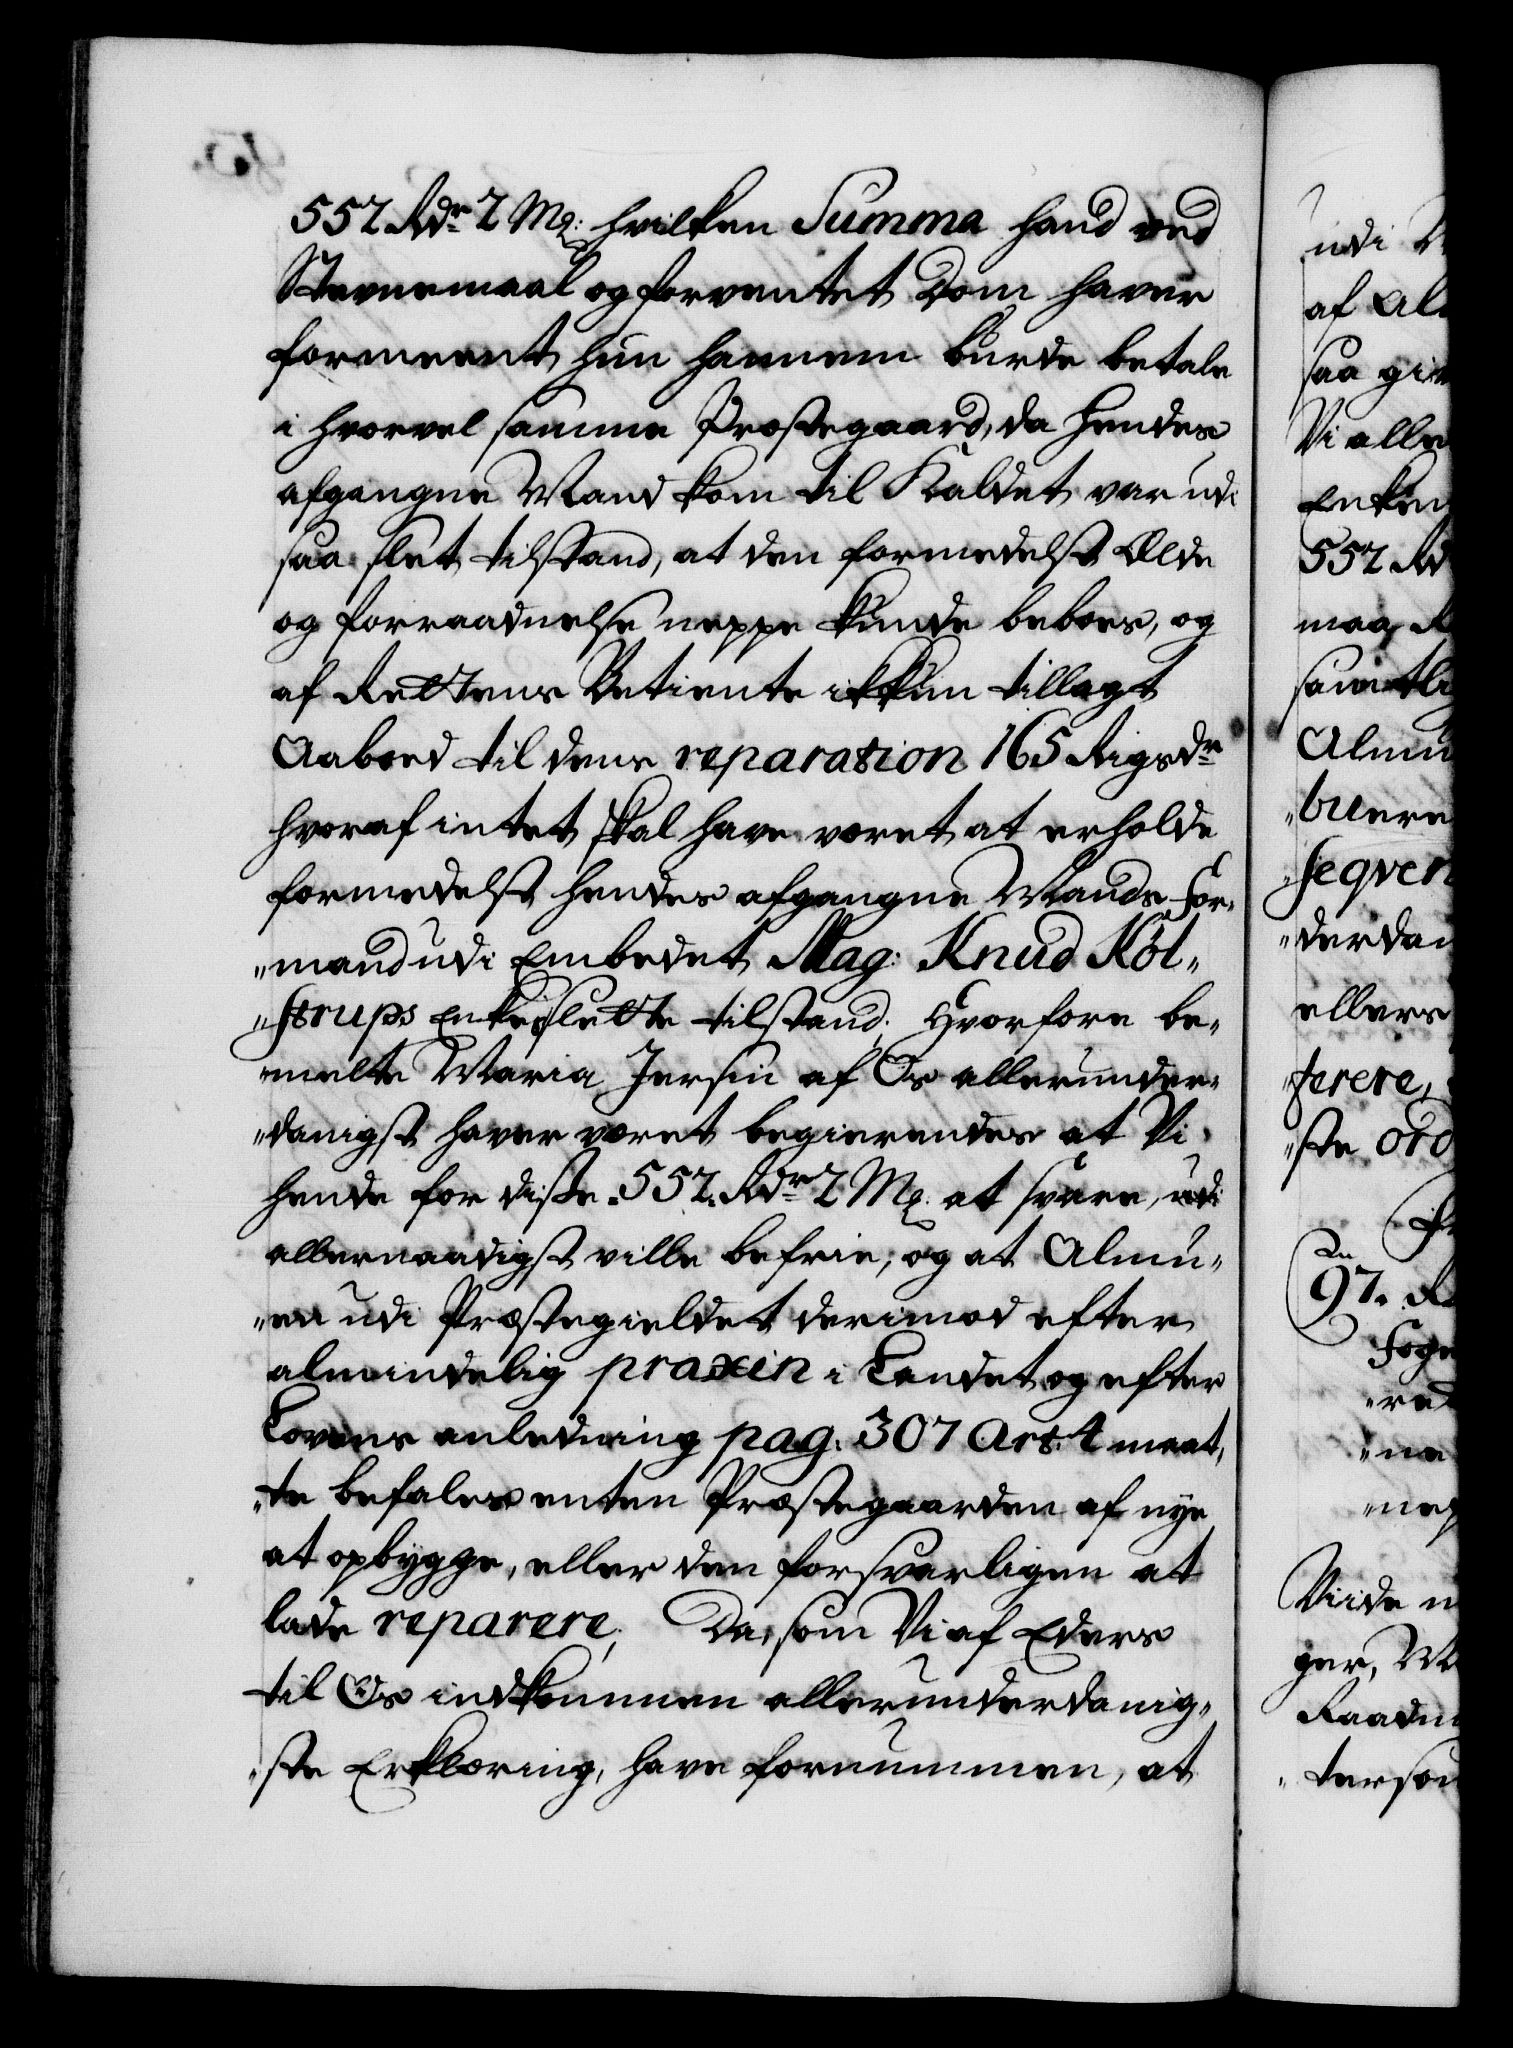 552 Rdr 2 Mk: hvilken Summa hand ved
Stevnemaal og forventet Dom haver
formeent, hun hannem burde betale
i hvorvel samme Præstegaard, da hendes
afgangne Mand kom til Kaldet var udi
saa slet tilstand, at den formedelst Ælde
og forraadnelse neppe kunde beboes, og
af Rettens Betiente ikkun tillagt
Aaboed til dens reparation 165 Rigsdr
hvoraf intet skal have været at erholde
formedelst hendes afgangne Mands For-
„mand udi Embedet Mag: Knud Røl„
„strups Enkes slette tilstand; Hvorfore be„
melte Maria Jersin af Os allerunder„
„danigst haver været begierendes at Vi
hende for diste 552. Rdr 2 Mk. at svare, udi
allernaadigst ville befrie, og at Almu„
„en udi Præstegieldet derimod efter
almindelig praxin i Landet og efter
Lovens anledning pag: 307 Art: 4 maat„
„te befales enten Præstegaarden af nye
at opbygge, eller den forsvarligen at
lade reparere; Da, som Vi af Eders
til Os indkommen allerunderdanig„
„ste Erklæring, have fornummen, at
udi
af Al
saa gi
Vi alle
Enken
552 Rd
maa
samtli
Almu
„buere
„seqven
„derdan
ellers
„terere,
„ste ord
97.
Foge
„red
„ne
„nes
Viide
ger,
Raadm
„terson